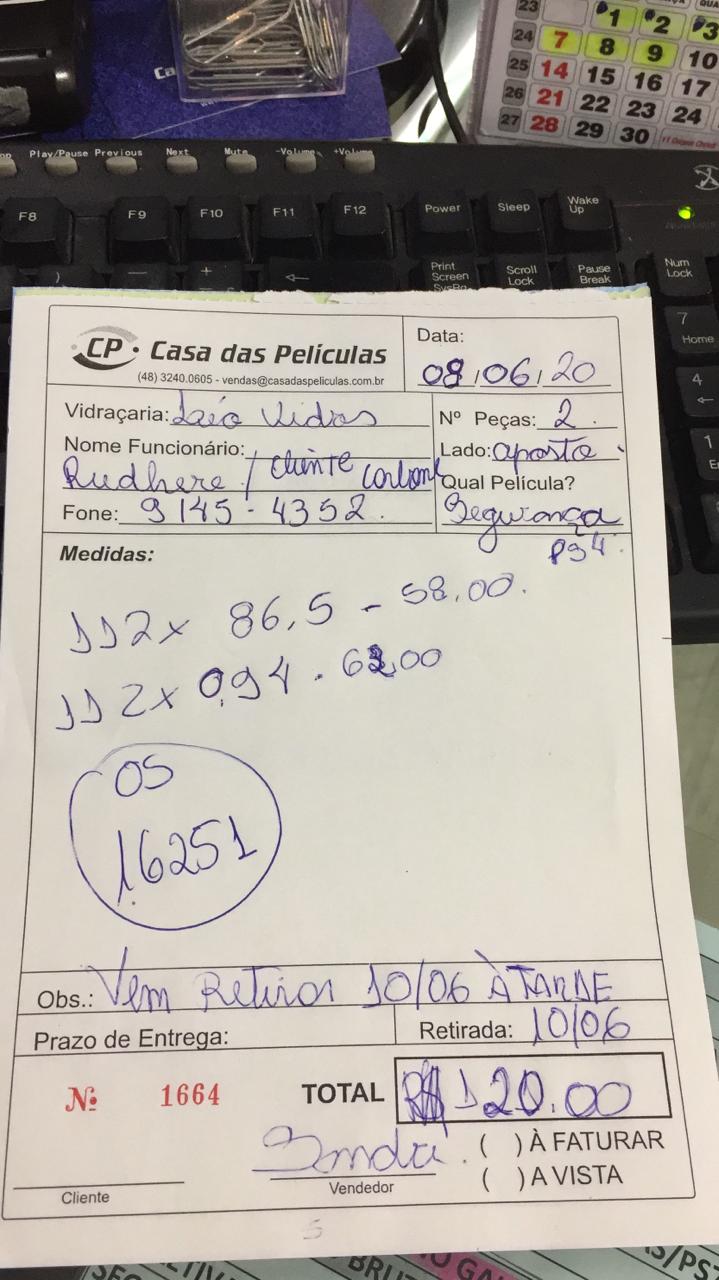 23 1 2 3
24 7 8 9 10
25 14 15 16 17
26 21 22 23 24
27 28 29 30
Play/Pause Previous Next Mute -Volume +Volume
F8 F9 F10 F11 F12 Power Sleep Wake Up
Print Screen SysRq Scroll Lock Pause Break Num Lock
7 Home
4
1
CP Casa das Películas
(48) 3240.0605 - vendas@casadaspeliculas.com.br
Data: 08/06/20
Vidraçaria: Vidros
Nº Peças: 2
Nome Funcionário:
Rudhere / cliente
Lado: oposto
Qual Película?
Segurança
PS4
Fone: 9145-4352
Medidas:
112 x 86,5 - 58,00
112 x 0,94 . 62,00
OS
16251
Obs.: Vem Retirar 10/06 À TARDE
Prazo de Entrega:
Retirada: 10/06
Nº 1664
TOTAL R$ 120.00
( ) À FATURAR
( ) A VISTA
Cliente
Vendedor